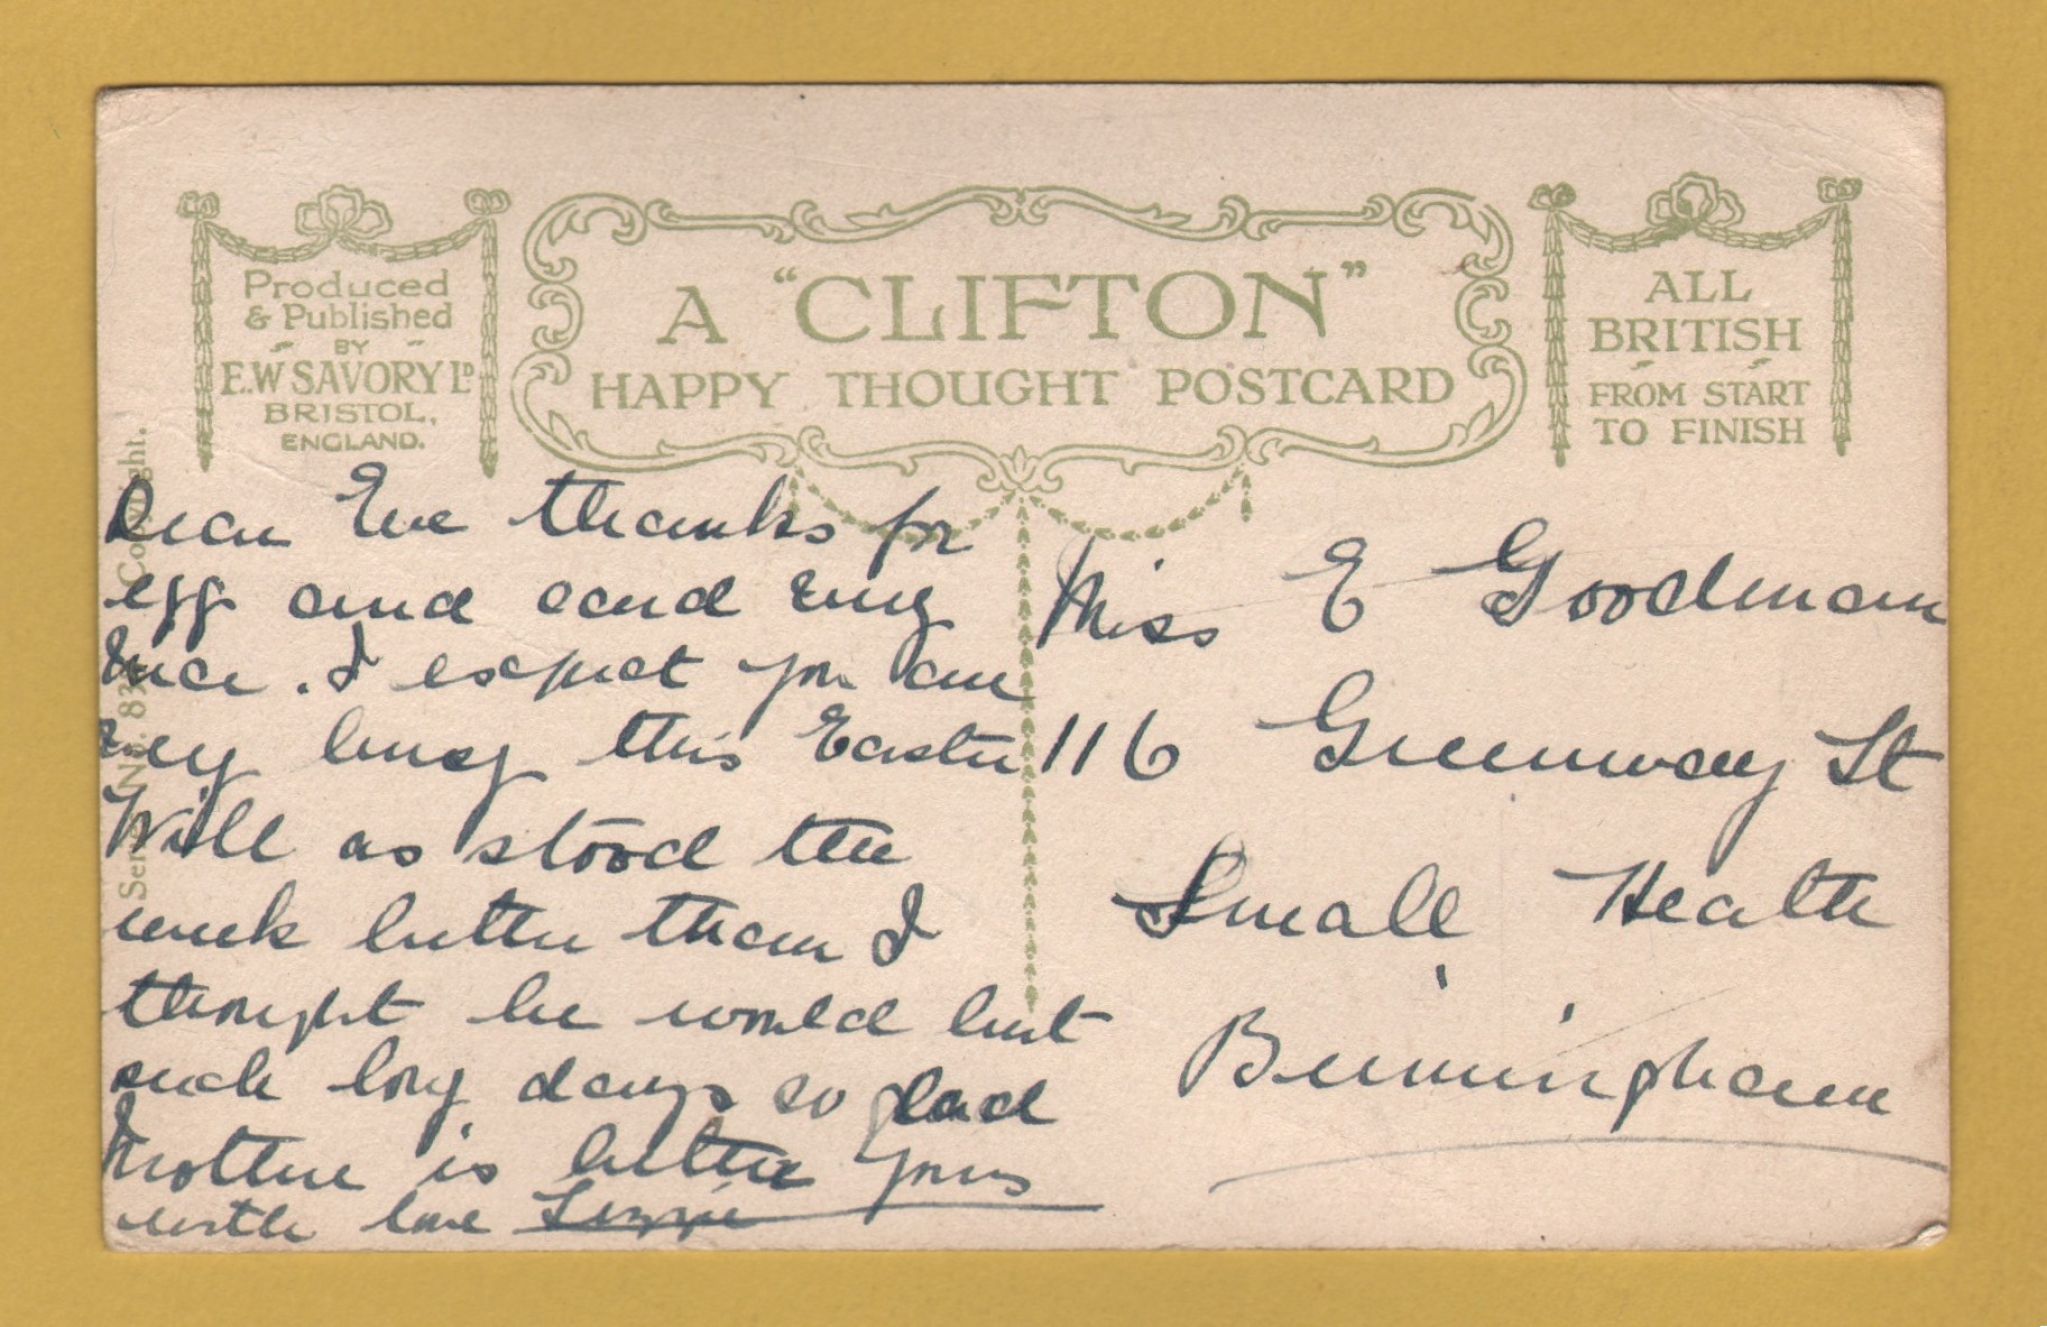 Produced
& Published
BY
E.W SAVORY LD
BRISTOL,
ENGLAND.
A "CLIFTON"
HAPPY THOUGHT POSTCARD
ALL
BRITISH
FROM START
TO FINISH
Copyright.
Dear Eve thanks for
egg and card very
nice . I expect you are
very busy this Easter
Will as stood the
week better than I
thought he would but
such long days so glad
Mother is better Yours
with love Lizzie
Miss E Goodman
116 Greenway St
Small Heath
Birmingham